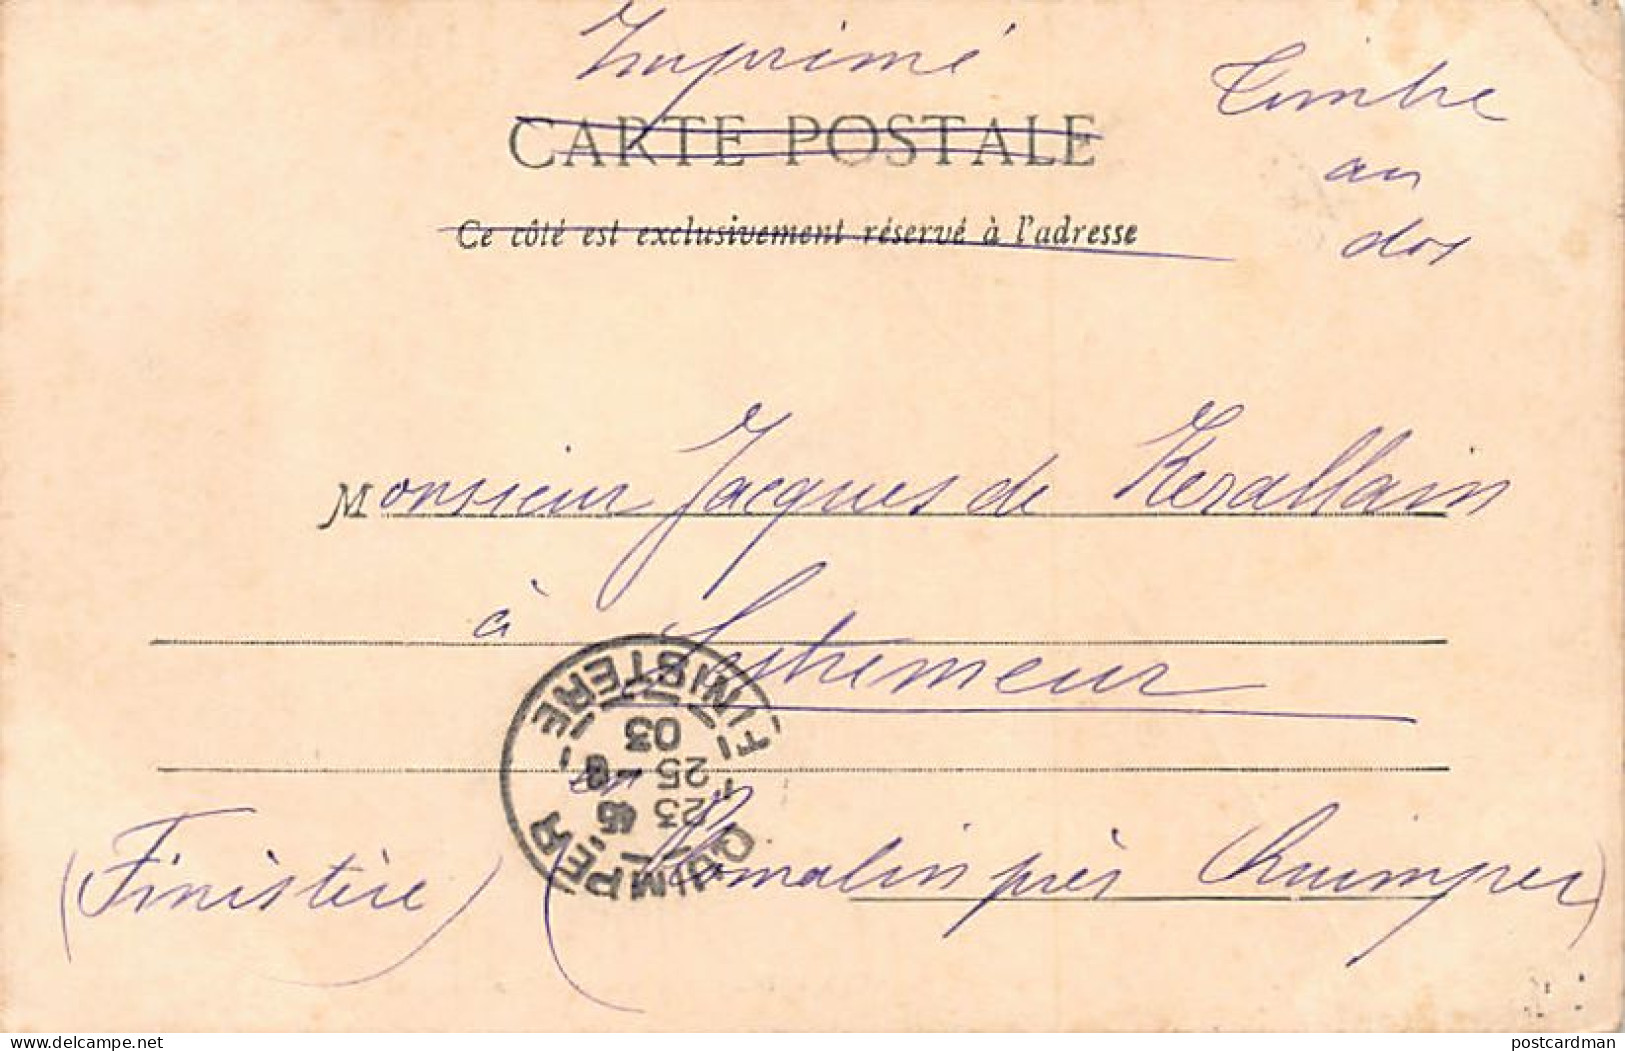 Imprimé
Timbre
au
dos
CARTE POSTALE
Ce côté est exclusivement réservé à l'adresse
Monsieur Jacques de Kerallain
à Lestremeur
en
(Finistère) (Plomelin près Quimper)
QUIMPER
23 45
25 -8
03
FINISTERE
delcampe.net
postcardman